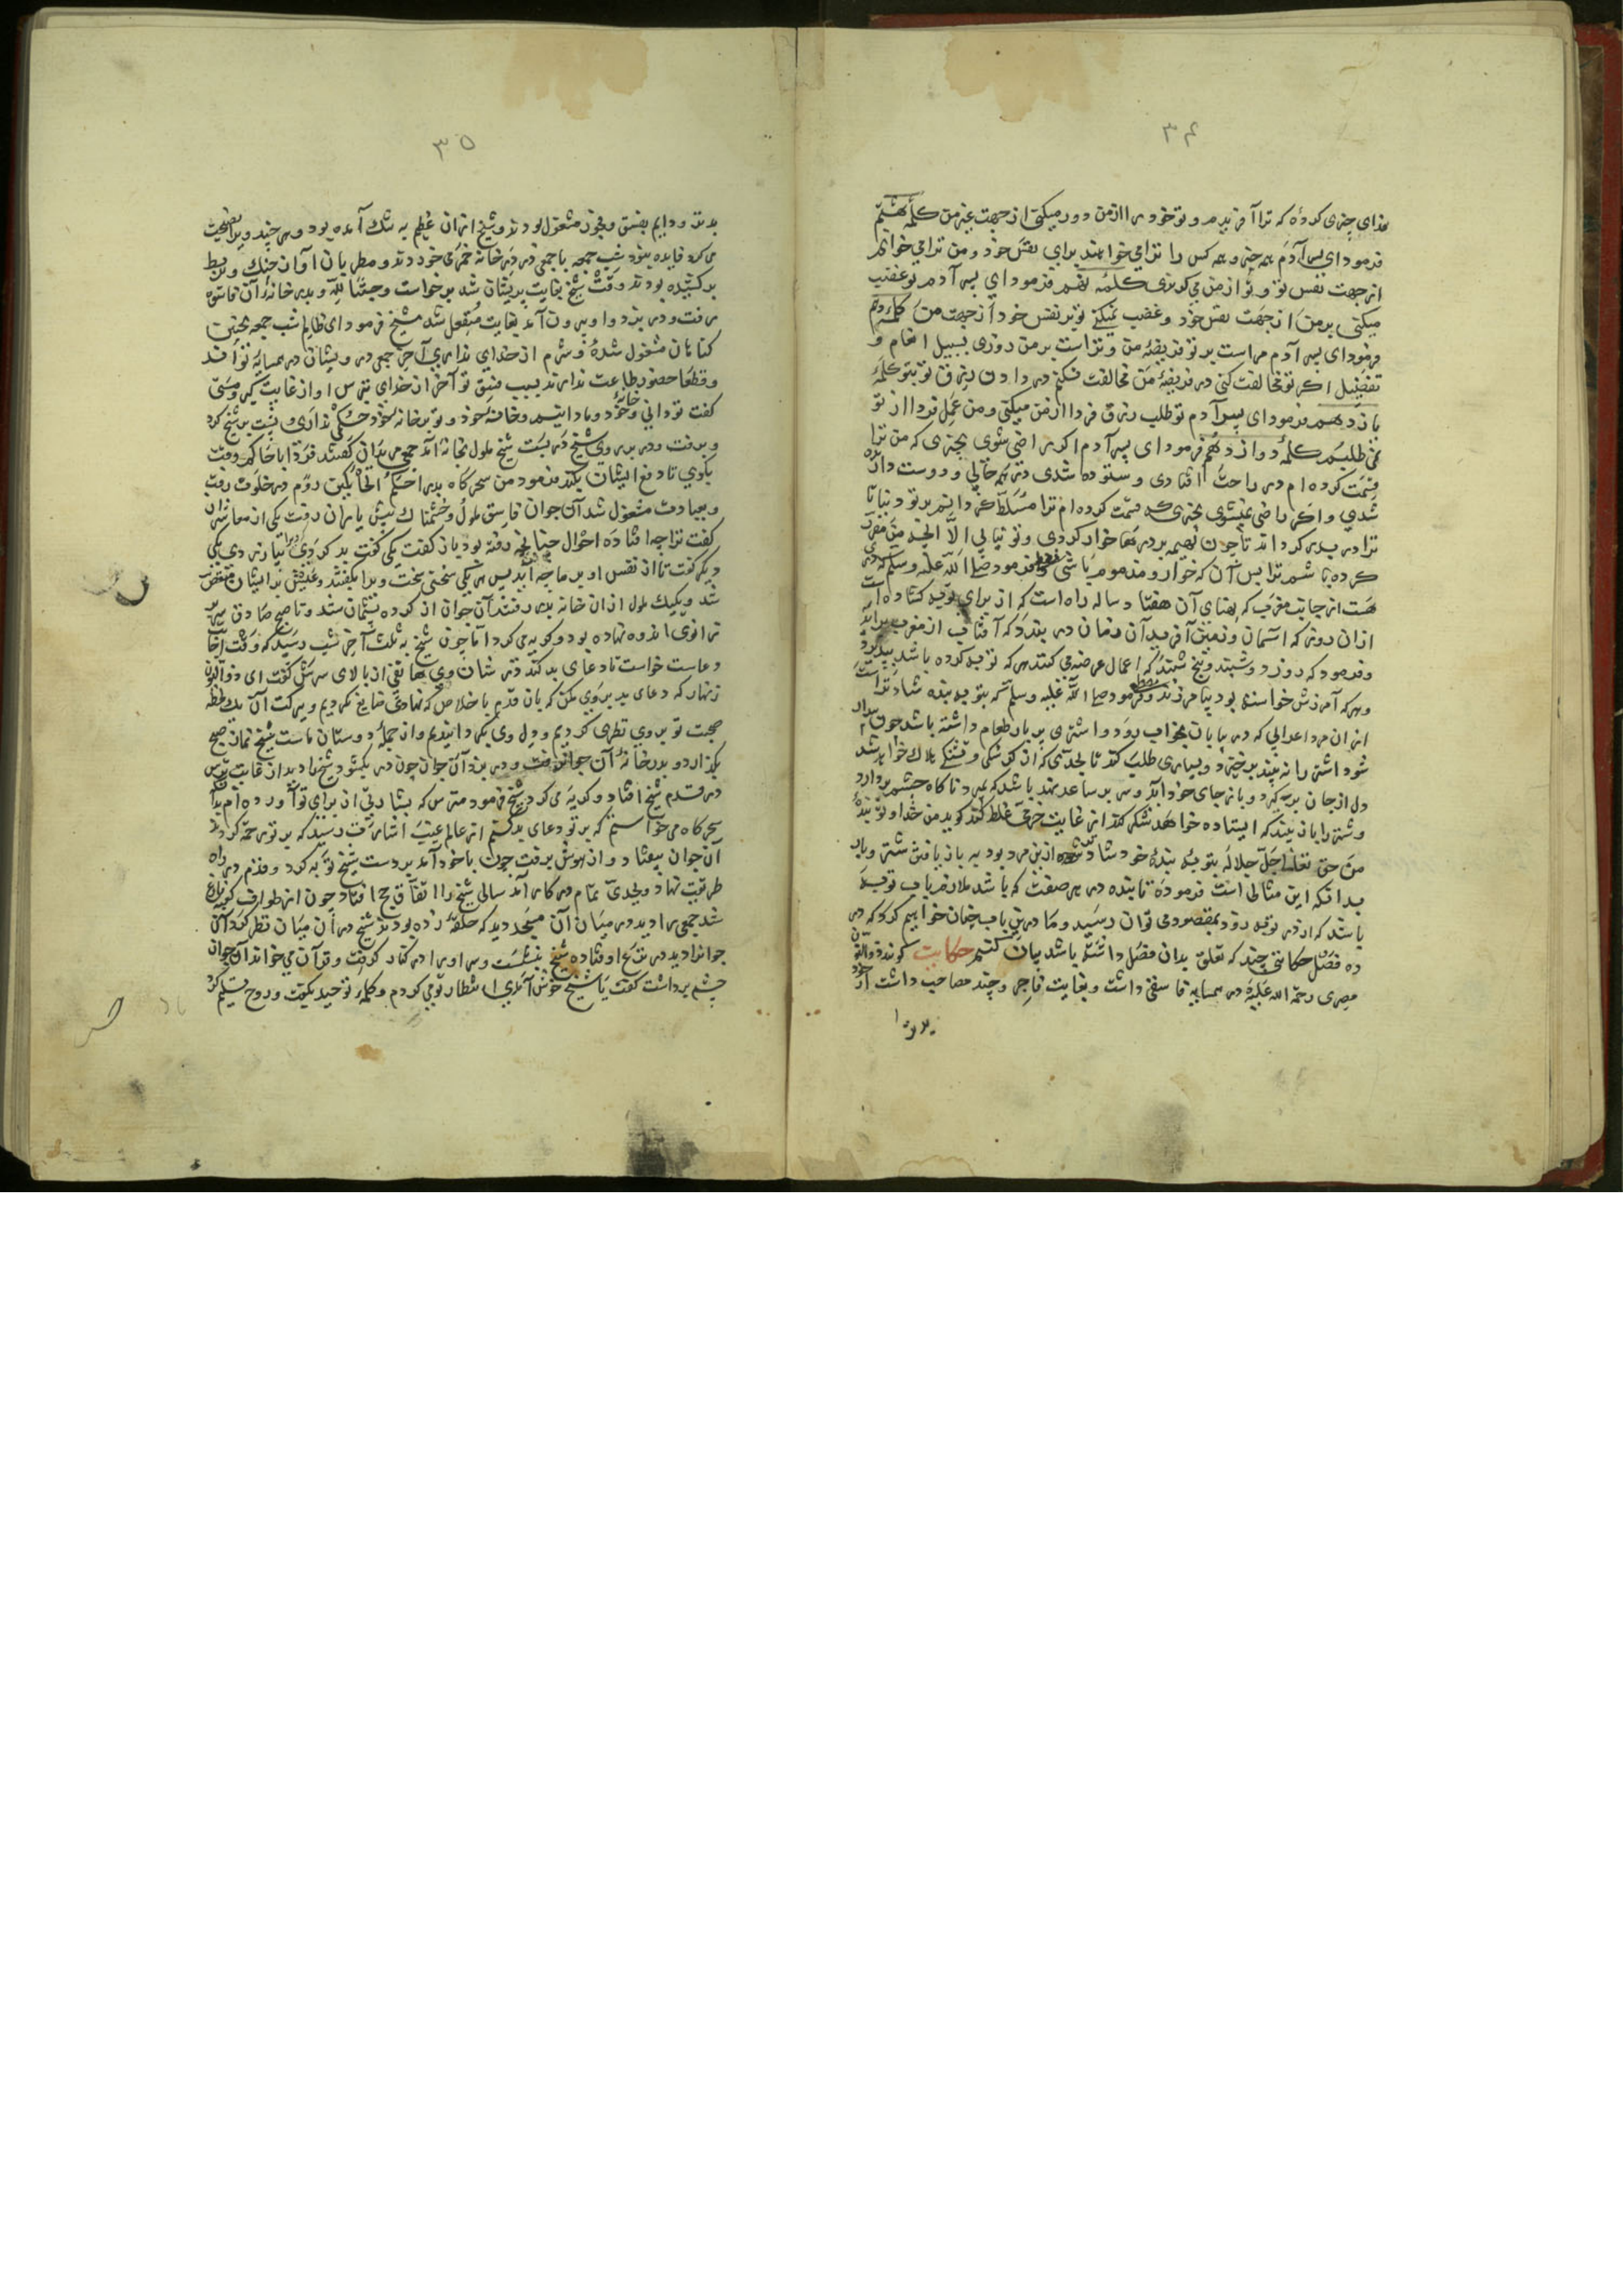 ۳۴
فدای چیزی کرده که ترا آفریدم و تو خود را از من دور میکنی از جهت غیر من کلمه هشتم
فرمود ای پسر آدم همه چیز و همه کس را ترا می خواهند برای نفس خود و من ترا می خواهم
از جهت نفس تو و تو از من می گریزی کلمه نهم فرمود ای پسر آدم تو غضب
میکنی بر من از جهت نفس خود و غضب نمیکنی تو بر نفس خود از جهت من کلمه دهم
فرمود ای پسر آدم مراست بر تو فریضه من و تراست بر من روزی بسبیل انعام و
تفضیل اگر تو مخالفت کنی در فریضه من مخالفت نکنم در دادن رزق تو بتو کلمه
یازدهم فرمود ای پسر آدم تو طلب رزق فردا از من میکنی و من عمل فردا از تو
نمی طلبم کلمه دوازدهم فرمود ای پسر آدم اگر راضی شوی بچیزی که من ترا
قسمت کرده ام در راحت افتادی و ستوده شدی در همه حالی و دوست داده
شدی و اگر راضی نمیشوی بچیزی که قسمت کرده ام ترا مسلط گردانیم بر تو دنیا تا
ترا در بدر گرداند تا چون بهیمه بر درها خوار گردی و تو نیابی الا آنچه من مقرر
کرده باشم ترا پس آن که خوار و مذموم باشی فرمود صلی الله علیه وسلم که دری
هست از جانب مغرب که پهنای آن هفتاد ساله راه است که از برای توبه گشاده است
از ان روز که آسمان و زمین آفرید آن زمان در بندد که آفتاب از مغرب برآید
و فرمود که روز دوشنبه و پنج شنبه که اعمال عرضه می کنند هر که توبه کرده باشد بپذیرد
و هر که آمرزش خواسته بود بیامرزند و فرمود صلی الله علیه وسلم که بتوبه بنده شادتر است
از ان مرد اعرابی که در بیابان بخواب رود و اشتری پر بار طعام داشته باشد چون بیدار
شود اشتر را نه بیند برخیزد و بسیاری طلب کند تا بحدی که از گرسنگی و تشنگی هلاک خواهد شد
دل از جان برگیرد و باز جای خود آید و سر بر ساعد نهد باشد که بمیرد ناگاه چشم بردارد
و شتر را باز بیند که ایستاده خواهد شکر کند از غایت خرمی غلط کند گوید من خدا و تو بنده
من حق تعالی جل جلاله بتوبه بنده خود شادتر از بن مرد بود به باز یافتن شتر و بار
بدانکه این مثالی است فرموده تا بنده در هر صفت که باشد ملازم باب توبه
باشد که از در توبه زود بمقصود می توان رسید و ما درین باب چنان خواهیم کرد که در
ده فصل حکایتی چند که تعلق بدان فصل داشته باشد بیان کنیم حکایت گویند ذوالنون
مصری رحمة الله علیه در همسایه فاسقی داشت و بغایت فاجر و چند مصاحب داشت از خود
بدتر
۳۵
بدتر و دایم بفسق و فجور مشغول بودند و شیخ از ان عظیم به تنگ آمده بود و هر چند ویرا نصیحت
می کرد فایده نبود شب جمعه با جمعی در خانه خمر می خوردند و مطربان آواز چنگ و بربط
برکشیده بودند وقت شیخ بغایت پریشان شد برخواست و حسبة لله و بدر خانه آن فاسق
رفت و در بزد او بیرون آمد بغایت منفعل شد شیخ فرمود ای ظالم شب جمعه بچنین
گناهان مشغول شده و شرم از خدای نداری آخر جمعی درویشان در همسایه تواند
و قطعا حضور طاعت ندارند بسبب فسق تو آخر از خدای بترس او از غایت کبر و مستی
گفت تو دانی و خانه خود و ما دانیم و خانه خود و تو بر خانه خود حکمی نداری و پشت بر شیخ کرد
و برفت و در بر روی شیخ در بست شیخ ملول بخانه آمد جمعی مریدان گفتند فردا با حاکم وقت
بگوی تا دفع ایشان بکند فرمود من سحرگاه بدر احکم الحاکمین روم در خلوت رفت
و بعبادت مشغول شد آن جوان فاسق ملول و خشمناک پیش یاران رفت یکی از معاشران
گفت ترا چه افتاده احوال چنانچه رفته بود باز گفت یکی گفت بد کردی چرا نیازردی یکی
دیگر گفت تا از نفس او بر ما چه آید پس هر یکی سخنی سخت ویرا بگفتند و عیش بر ایشان منغص
شد و یکیک ملول از ان خانه بدر رفتند آن جوان از کرده پشیمان شد و تا صبح صادق سر بر
زانوی اندوه نهاده بود و گریه می کرد اما چون شیخ به ثلث آخر شب رسید که وقت اجابت
دعاست خواست تا دعای بد کند در شان وی هاتفی از بالای سرش گفت ای ذوالنون
زنهار که دعای بد بر وی مکن که بان قدم با خلاص که نهادی ضایع نکردیم و ببرکت آن یک لحظه
صحبت تو بر وی نظری کردیم و دل وی بگردانیدیم و از جمله دوستان ماست شیخ نماز صبح
بگزارد و بدر خانه آن جوان رفت و در بزد آن جوان چون در بگشود شیخ را دید از غایت ترس
در قدم شیخ افتاد و گریه می کرد شیخ فرمود مترس که بشارتی از برای تو آورده ام بدانکه
سحرگاه می خواستم که بر تو دعای بد کنم از عالم غیب اشارت رسید که بر تو رحمت کردند
آن جوان بیفتاد و از هوش برفت چون باخود آمد بر دست شیخ توبه کرد و قدم در راه
طریقت نهاد و بجدی تمام در کار آمد سالی شیخ را اتفاق حج افتاد چون از طواف کعبه فارغ
شد جمعی را دید در میان آن مسجد دید که حلقه زده بودند شیخ در آن میان نظر کرد آن
جوانرا دید در نزع افتاده شیخ بنشست و سر او را در کنار گرفت و قرآن می خواند آن جوان
چشم برداشت گفت یا شیخ خوش آمدی انتظار تو می کردم و کلمه توحید بگفت و روح تسلیم کرد